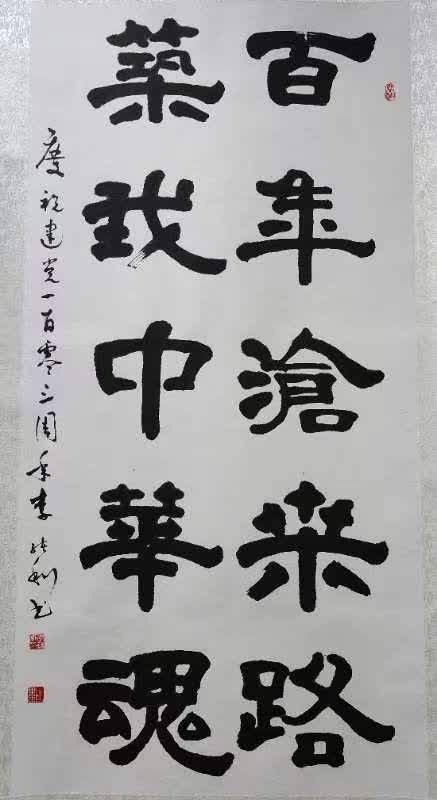 百年滄桑路
築我中華魂
慶祝建党一百零三周年李利书